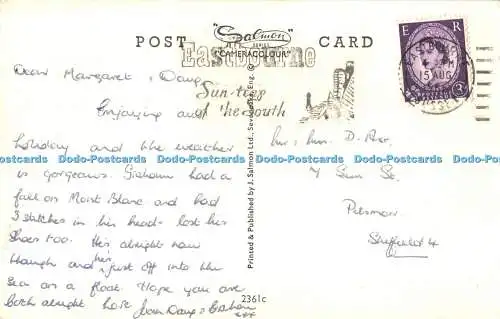 POST CARD
"Salmon"
"CAMERACOLOUR"
Eastbourne
Sun-trap
of the South
E R
15 AUG
3D
Dear Margaret & Doug,
Enjoying our
holiday and the weather
is gorgeous. Graham had a
fall on Mont Blanc and had
3 stitches in his head - lost his
shoes too. He's alright now
though and he's just off into the
sea on a float. Hope you are
both alright love Joan Doug & Graham
xxx
Mr & Mrs D.
4 Sum St.
Pitsmoor
Sheffield 4
Printed & Published by J. Salmon Ltd., Sevenoaks, Eng. ©
2361c
Dodo-Postcards Dodo-Postcards Dodo-Postcards Dodo-Postcards Dodo-Postcards Dodo-Postcards